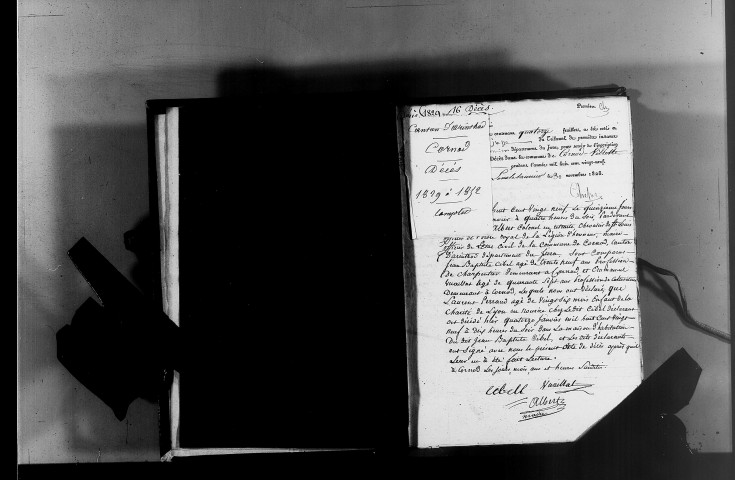 1829 16 Décès.
Canton d'arinthod
Cornod
Décès
1829 à 1852
complet
quatorze feuillets, a été coté et
du Tribunal de première instance
département du Jura, pour servir à l'inscription
Décès dans la commune de Cornod
pendant l'année mil huit cent vingt-neuf.
novembre 1828.
huit Cent vingt neuf le quinzième jour
à quatre heures du soir, Pardevant
Albert Colonel en retraite, chevalier
ordre royal de la Légion d'honneur, maire
officier de L'état civil de la Commune de Cornod, Canton
D'arinthod département du Jura. Sont Comparus
Jean Baptiste Cibel agé de trente neuf ans Profession
de charpentier demeurant à Cornod et
Vuaillat agé de quarante sept ans Profession de cultivateur
Demeurant à Cornod, Lesquels nous ont Déclaré que
Laurent Perraud agé de vingt six mois Enfant de la
Charité de Lyon en nourrice chez Ledit Cibel déclarant
est décédé hier quatorze janvier mil huit Cent vingt
neuf à dix heures du Soir dans La maison d'habitation
Du dit Jean Baptiste Cibel, et les dits déclarants
ont signé avec nous le présent acte de décès après que
Leur en a été fait Lecture.
à Cornod Les jour, mois ans et heure Susdits.
Vuaillat
Albert
maire